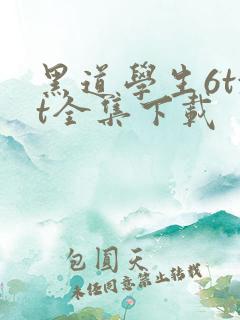 黑道學生6tx
t全集下載
包圓天
未經同意禁止轉載